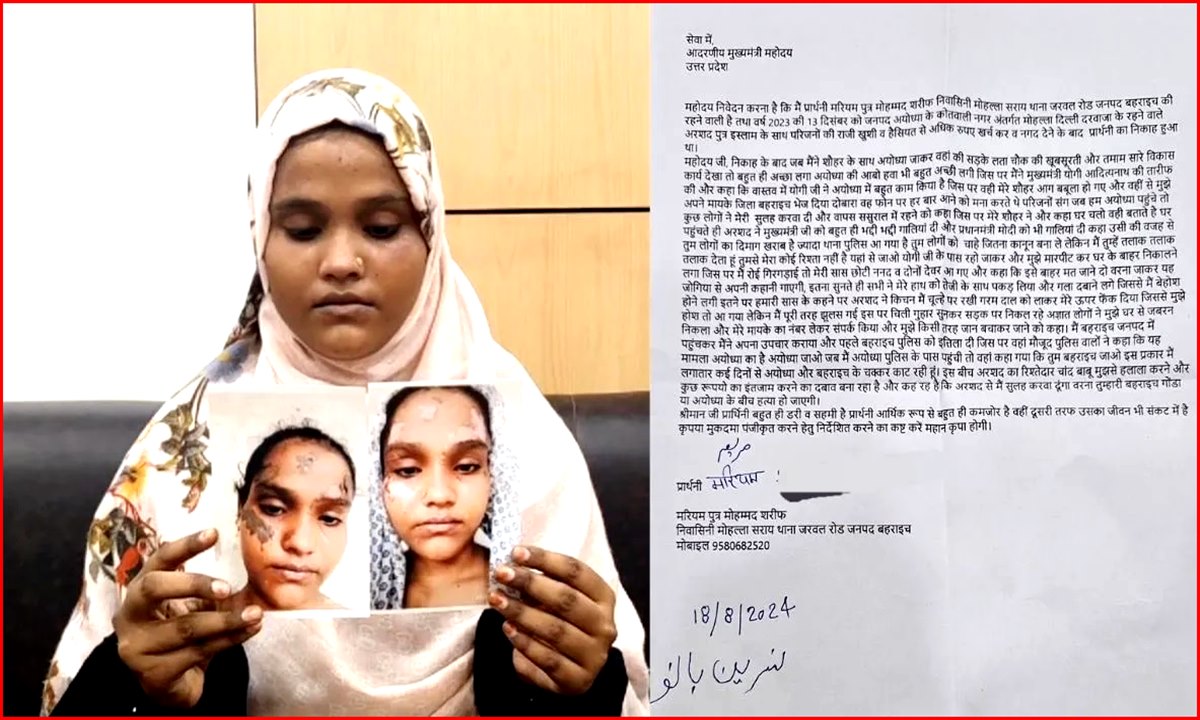 सेवा में,
आदरणीय मुख्यमंत्री महोदय
उत्तर प्रदेश
महोदय निवेदन करना है कि मैं प्रार्थनी मरियम पुत्र मोहम्मद शरीफ निवासिनी मोहल्ला सराय थाना जरवल रोड जनपद बहराइच की
रहने वाली है तथा वर्ष 2023 की 13 दिसंबर को जनपद अयोध्या के कोतवाली नगर अंतर्गत मोहल्ला दिल्ली दरवाजा के रहने वाले
अरशद पुत्र इस्लाम के साथ परिजनों की राजी खुशी व हैसियत से अधिक रुपए खर्च कर व नगद देने के बाद प्रार्थनी का निकाह हुआ
था।
महोदय जी, निकाह के बाद जब मैंने शौहर के साथ अयोध्या जाकर वहां की सड़के लता चौक की खूबसूरती और तमाम सारे विकास
कार्य देखा तो बहुत ही अच्छा लगा अयोध्या की आबो हवा भी बहुत अच्छी लगी जिस पर मैंने मुख्यमंत्री योगी आदित्यनाथ की तारीफ
की और कहा कि वास्तव में योगी जी ने अयोध्या में बहुत काम किया है जिस पर वही मेरे शौहर आग बबूला हो गए और वहीं से मुझे
अपने मायके जिला बहराइच भेज दिया दोबारा वह फोन पर हर बार आने को मना करते थे परिजनों संग जब हम अयोध्या पहुंचे तो
कुछ लोगों ने मेरी सुलह करवा दी और वापस ससुराल में रहने को कहा जिस पर मेरे शौहर ने और कहा घर चलो वही बताते है घर
पहुंचते ही अरशद ने मुख्यमंत्री जी को बहुत ही भद्दी भद्दी गालियां दी और प्रधानमंत्री मोदी को भी गालियां दी कहा उसी की वजह से
तुम लोगों का दिमाग खराब है ज्यादा थाना पुलिस आ गया है तुम लोगों को चाहे जितना कानून बना ले लेकिन मैं तुम्हें तलाक तलाक
तलाक देता हूं तुमसे मेरा कोई रिश्ता नहीं है यहां से जाओ योगी जी के पास रहो जाकर और मुझे मारपीट कर घर के बाहर निकालने
लगा जिस पर मैं रोई गिरगड़ाई तो मेरी सास छोटी ननद व दोनों देवर आ गए और कहा कि इसे बाहर मत जाने दो वरना जाकर यह
जोगिया से अपनी कहानी गाएगी, इतना सुनते ही सभी ने मेरे हाथ को तेजी के साथ पकड़ लिया और गला दबाने लगे जिससे मैं बेहोश
होने लगी इतने पर हमारी सास के कहने पर अरशद ने किचन में चूल्हे पर रखी गरम दाल को लाकर मेरे ऊपर फेंक दिया जिससे मुझे
होश तो आ गया लेकिन मैं पूरी तरह झूलस गई इस पर चिली गुहार सुनकर सड़क पर निकल रहे अज्ञात लोगों ने मुझे घर से जबरन
निकला और मेरे मायके का नंबर लेकर संपर्क किया और मुझे किसी तरह जान बचाकर जाने को कहा। मैं बहराइच जनपद में
पहुंचकर मैंने अपना उपचार कराया और पहले बहराइच पुलिस को इत्तिला दी जिस पर वहां मौजूद पुलिस वालों ने कहा कि यह
मामला अयोध्या का है अयोध्या जाओ जब मैं अयोध्या पुलिस के पास पहुंची तो वहां कहा गया कि तुम बहराइच जाओ इस प्रकार में
लगातार कई दिनों से अयोध्या और बहराइच के चक्कर काट रही हूं। इस बीच अरशद का रिश्तेदार चांद बाबू मुझसे हलाला करने और
कुछ रूपयो का इंतजाम करने का दबाव बना रहा है और कह रहा है कि अरशद से मैं सुलह करवा दूंगा वरना तुम्हारी बहराइच गोंडा
या अयोध्या के बीच हत्या हो जाएगी।
श्रीमान जी प्रार्थिनी बहुत ही डरी व सहमी है प्रार्थनी आर्थिक रूप से बहुत ही कमजोर है वहीं दूसरी तरफ उसका जीवन भी संकट में है
कृपया मुकदमा पंजीकृत करने हेतु निर्देशित करने का कष्ट करें महान कृपा होगी।
مریم
प्रार्थनी मरियम :
मरियम पुत्र मोहम्मद शरीफ
निवासिनी मोहल्ला सराय थाना जरवल रोड जनपद बहराइच
मोबाइल 9580682520
18/8/2024
نسرین بانو